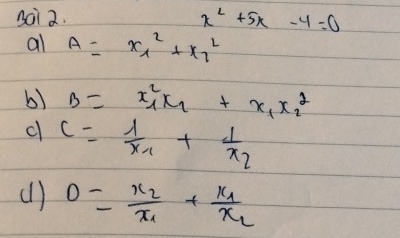 Bài 2. x² + 5x - 4 = 0
a) A = x₁² + x₂²
b) B = x₁²x₂ + x₁x₂²
c) C = 1/x₁ + 1/x₂
d) D = x₂/x₁ + x₁/x₂